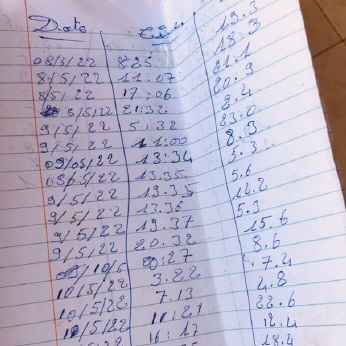 Date
13.3
18.3
08/5/22 8:25 21.1
8/5/22 11:07 20.9
8/5/22 17:06 2.4
8/5/22 21:32 23.0
9/5/22 5:32 8.3
9/5/22 11:00 5.3
09/05/22 13:34 5.6
09/05/22 13.35 14.2
9/5/22 13.35 5.3
9/5/22 13.36 15.6
9/5/22 19.37 8.6
9/5/22 20.32 7.4
10/5 0:27 4.8
10/5/22 3.22 22.6
10/5/22 7.13 12.4
10/5/22 11:21 18.4
10/5/22 16:17